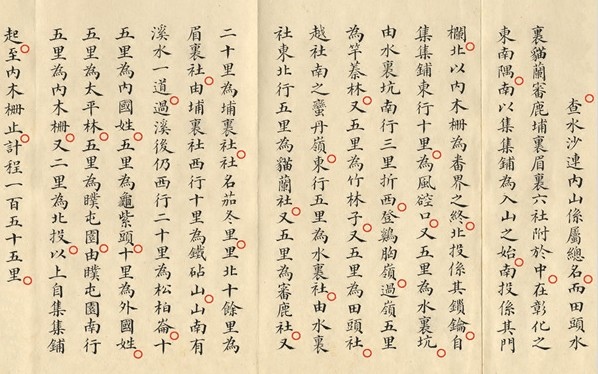 查水沙連內山係屬總名而田頭水
裏貓蘭審鹿埔裏眉裏六社附於中在彰化之
東南隅南以集集鋪為入山之始南投係其門
欄北以內木柵為番界之終北投係其鎖鑰自
集集鋪東行十里為風谾口又五里為水裏坑
由水裏坑南行三里折西登鷄胸嶺過嶺五里
為竿蓁林又五里為竹林子又五里為田頭社
越社南之蠻丹嶺東行五里為水裏社由水裏
社東北行五里為貓蘭社又五里為審鹿社又
二十里為埔裏社社名茄冬里里北十餘里為
眉裏社由埔裏社西行十里為鐵砧山山南有
溪水一道過溪後仍西行二十里為松柏崙十
五里為內國姓五里為龜紫頭十里為外國姓
五里為太平林五里為瞨屯園由瞨屯園南行
五里為內木柵又二里為北投以上自集集鋪
起至內木柵止計程一百五十五里